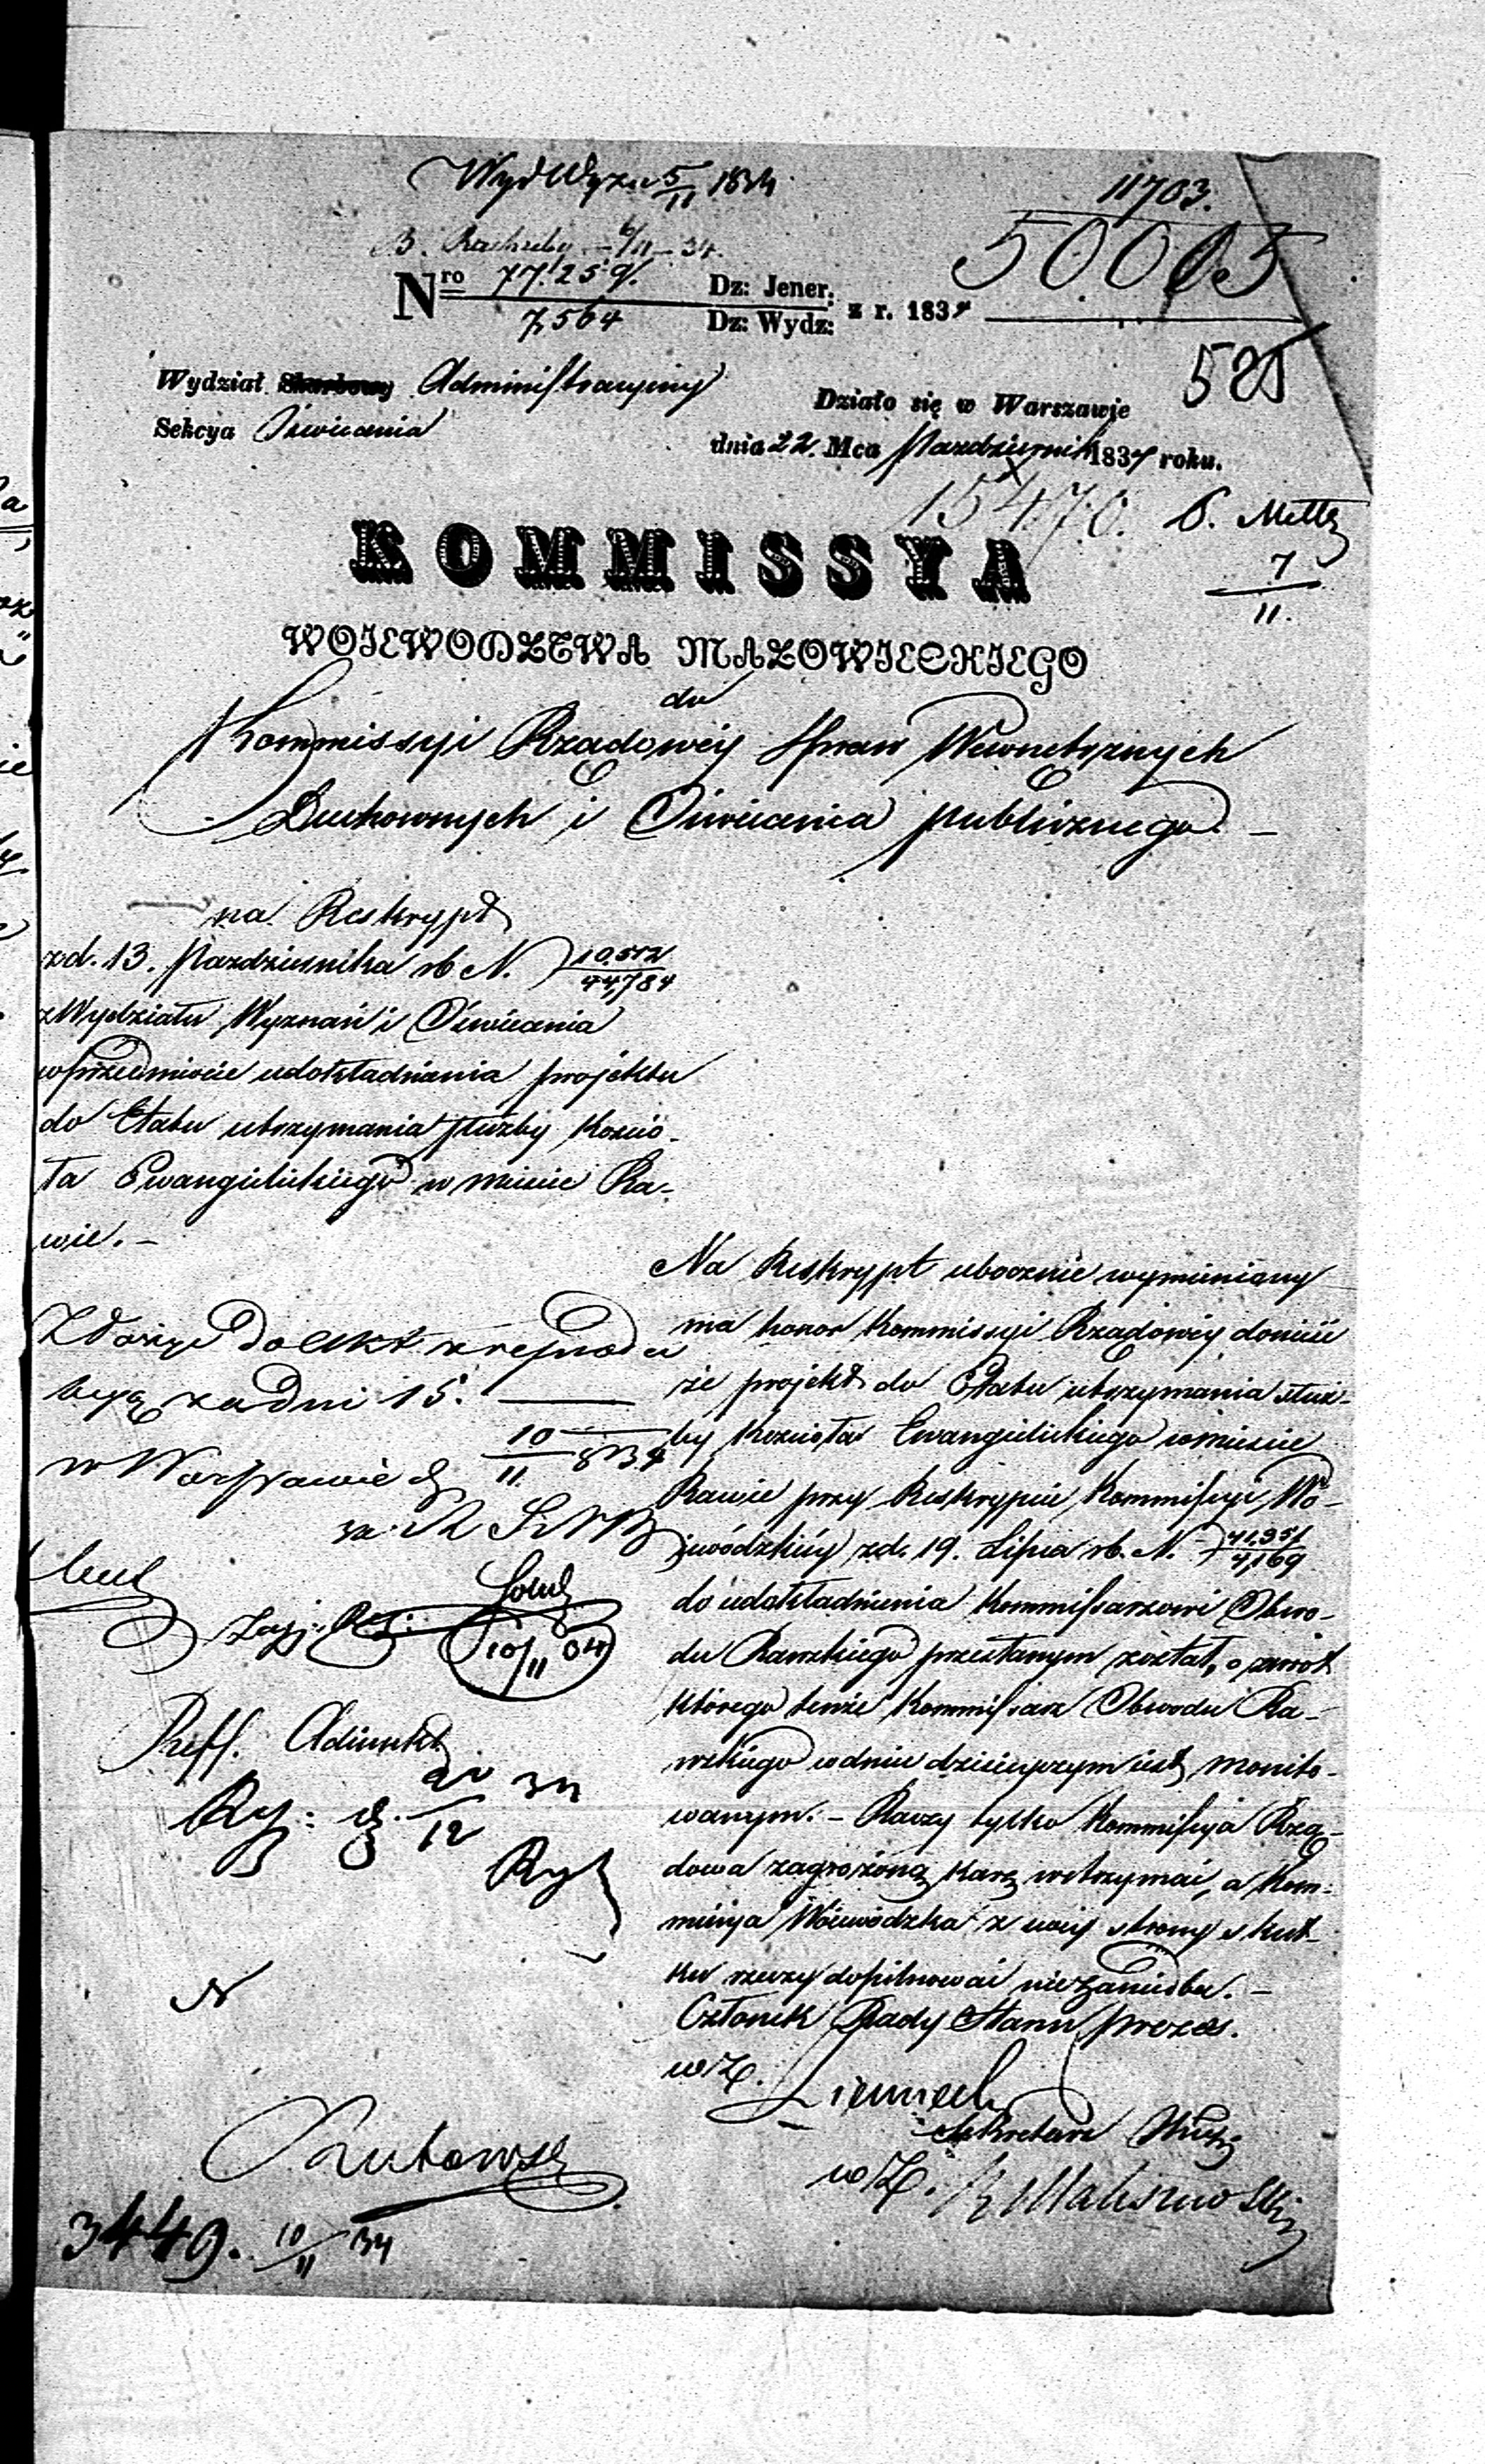 Wyd Wyzn 5/11 1834
11703.
B. 6/11 34.
50005
Nro 77.259. Dz: Jener:
7,564 Dz: Wydz: z r. 1834
525
Wydział Skarbowy Administracyiny
Działo się w Warszawie
Sekcya Oświecenia
dnia 22. Mca Pazdziernik 1834 roku.
15470.
7
11.
KOMMISSYA
WOJEWODZTWA MAZOWIECKIEGO
do
Kommissyi Rządowéy Spraw Wewnetrznych
Duchownych i Oświecenia publicznego. —
na Reskrypt
zd. 13. Pazdziernika rb N. 10,512/44,784
z Wydziału Wyznań i Oświecenia
w przedmiocie udokładnienia projektu
do Etatu utrzymania służby Kościo-
ła Ewangelickiego w mieście Ra-
wie. —
Na Reskrypt ubocznie wymieniony
ma honor Kommissyi Rządowéy donieść
że projekt do Etatu utrzymania służ-
by Kościoła Ewangelickiego w mieście
Rawie przy Reskrypcie Kommissyi Wo-
jewódzkiéy zd. 19. Lipca rb. N. 41,951/4,169
do udokładnienia Kommissarzowi Obwo-
du Rawskiego przesłanym został, o zwrot
którego tenże Kommissarz Obwodu Ra-
wskiego w dniu dzisieyszym iest monito-
wanym. — Raczy tylko Kommissya Rzą-
dowa zagrożoną karę wstrzymać, a Kom-
missya Woiewódzka z swéy strony skut-
ku rzeczy dopilnować niezaniedba. —
Członek Rady Stanu Prezes.
w Z.
Sekretarz
w Z.
do akt z
za dni 15. —
w Warszawie d 10/11 834
10/11 34
Reff. Adiunkt
12
3449. 10/11 34